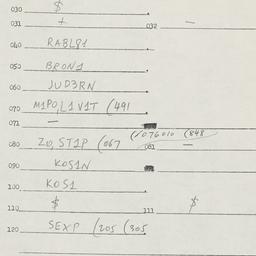 030 $
031 + 032 —
040 RABL81
050 BRON1
060 JUD3RN
070 M1PO,L1V1T (491
071 —
(076010 (848
080 ZO,ST1P (067 081 —
090 KOS1N
100 KOS1
110 $ 111 $
120 SEXP (205 (305